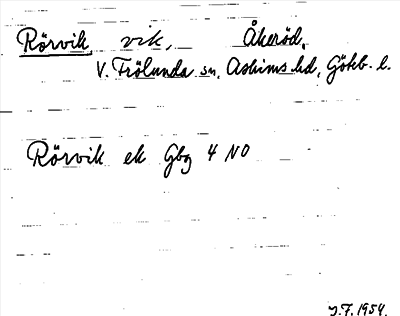 Rörvik, vik, Åkeröd,
V. Frölunda sn, Askims hd, Götb. l.
Rörvik ek Gbg 4 NO
J.F. 1954.